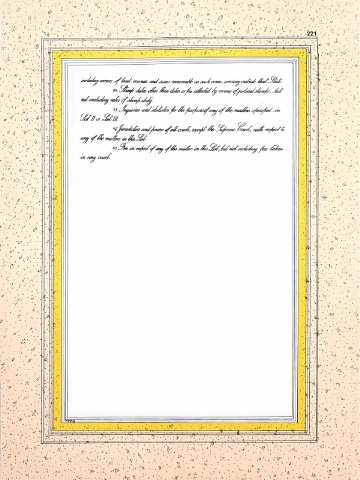 221
including arrears of land revenue and sums recoverable as such arrears, accruing outside that State.
44. Stamp duties other than duties or fees collected by means of judicial stamps, but
not including rates of stamp duty.
45. Inquiries and statistics for the purposes of any of the matters specified in
List II or List III.
46. Jurisdiction and powers of all courts, except the Supreme Court, with respect to
any of the matters in this List.
47. Fees in respect of any of the matters in this List, but not including fees taken
in any court.